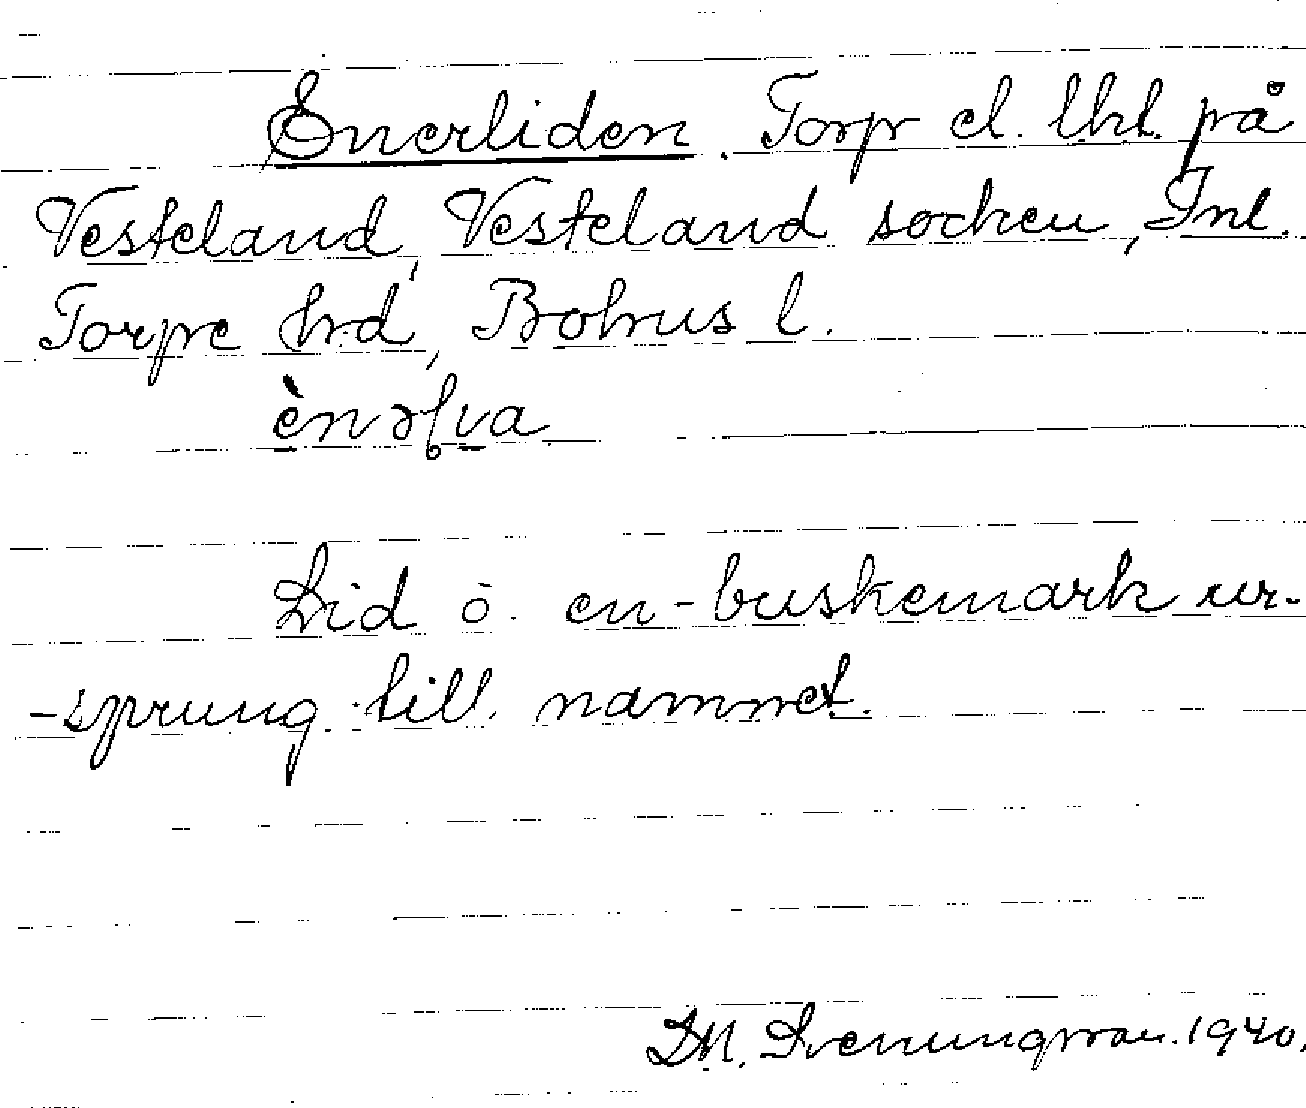 Enerliden. Torp el. lhl. på
Vesteland, Vesteland socken, Inl.
Torpe hrd, Bohus l.
ènəɭɩa
Lid o. en-buskemark ur-
-sprung till namnet.
D.M. Svenungsson. 1940.